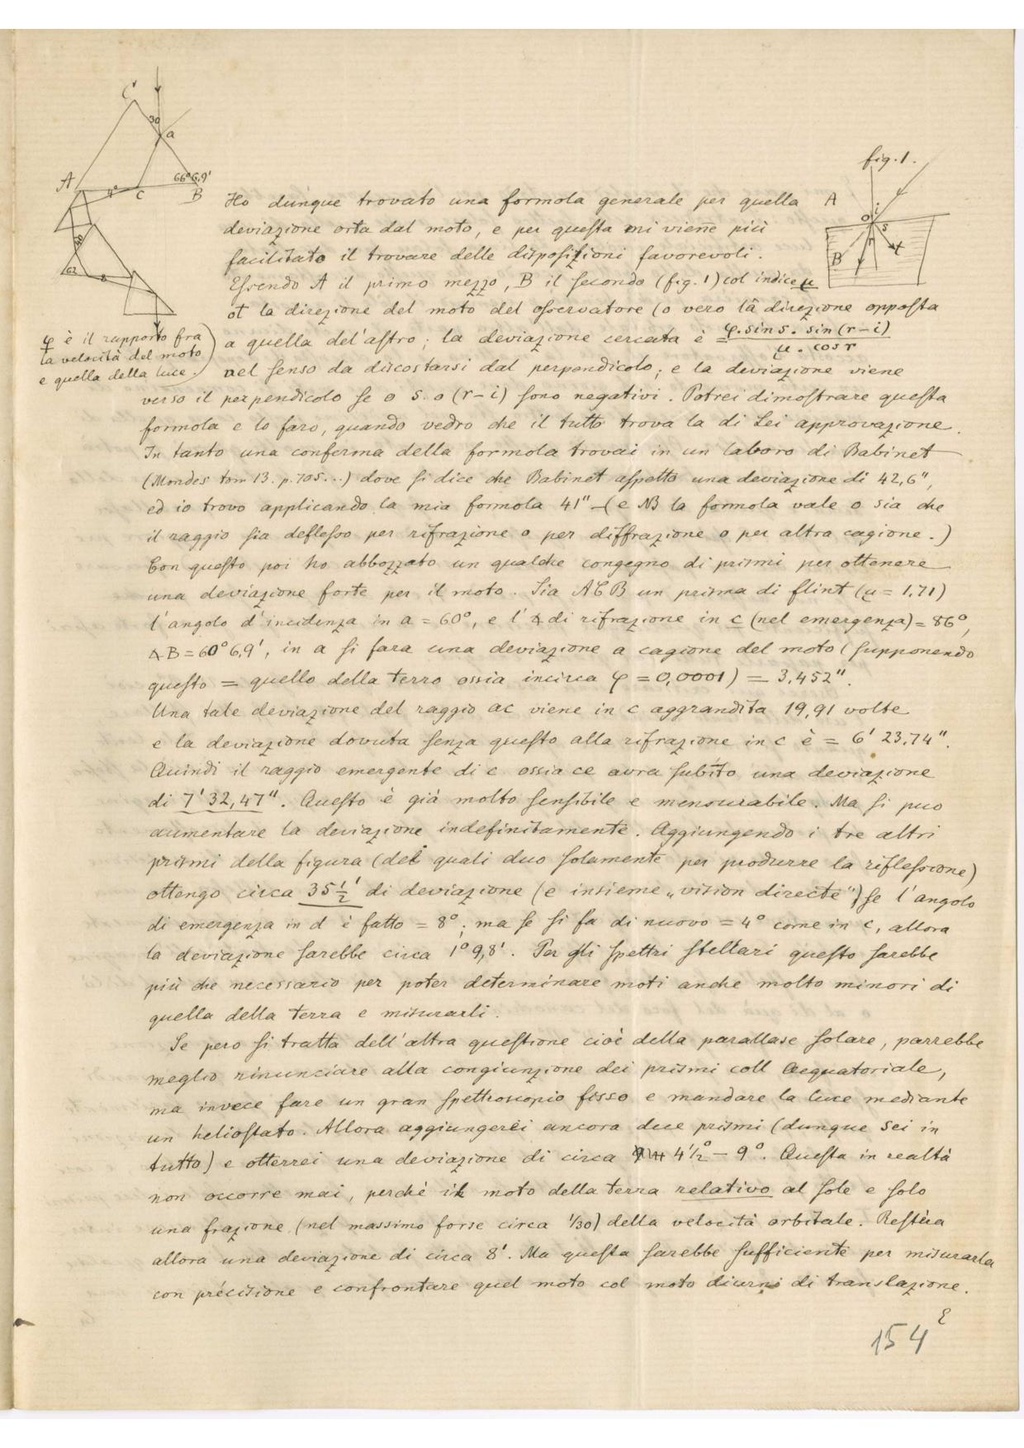 fig. 1.
C
30
a
A
4°
c
66°6,9'
B
A
i
o
s
r
t
B
62
8
Ho dunque trovato una formola generale per quella
deviazione orta dal moto, e per questa mi viene più
facilitato il trovare delle disposizioni favorevoli.
Essendo A il primo mezzo, B il secondo (fig. 1) col indice μ
ot la direzione del moto del osservatore (o vero la direzione opposta
a quella del'astro; la deviazione cercata è = φ. sin s. sin (r-i) / μ. cos r
φ è il rapporto fra
la velocità del moto
e quella della luce.
nel senso da discostarsi dal perpendicolo; e la deviazione viene
verso il perpendicolo se o s. o (r-i) sono negativi. Potrei dimostrare questa
formola e lo faro, quando vedro che il tutto trova la di Lei approvazione.
In tanto una conferma della formola trovai in un laboro di Babinet
(Mondes tom 13. p. 705...) dove si dice che Babinet aspetto una deviazione di 42,6",
ed io trovo applicando la mia formola 41" (e NB la formola vale o sia che
il raggio sia deflesso per rifrazione o per diffrazione o per altra cagione.)
Con questo poi ho abbozzato un qualche congegno di prismi per ottenere
una deviazione forte per il moto. Sia ACB un prisma di flint (μ = 1,71)
l'angolo d'incidenza in a = 60°, e l'∢ di rifrazione in c (nel emergenza) = 86°,
∢ B = 60°6,9', in a si fara una deviazione a cagione del moto (supponendo
questo = quello della terra ossia incirca φ = 0,0001) = 3,452".
Una tale deviazione del raggio ac viene in c aggrandita 19,91 volte
e la deviazione dovuta senza questo alla rifrazione in c è = 6' 23,74".
Quindi il raggio emergente di c ossia ce avra subito una deviazione
di 7' 32,47". Questo è già molto sensibile e mensurabile. Ma si puo
aumentare la deviazione indefinitamente. Aggiungendo i tre altri
prismi della figura (dei quali duo solamente per produrre la riflessione)
ottengo circa 35½' di deviazione (e insieme „vision directe") se l'angolo
di emergenza in d è fatto = 8°; ma se si fa di nuovo = 4° come in c, allora
la deviazione sarebbe circa 1° 9,8'. Per gli spettri stellari questo sarebbe
più che necessario per poter determinare moti anche molto minori di
quella della terra e misurarli.
Se pero si tratta dell'altra questione cioè della parallase solare, parrebbe
meglio rinunciare alla congiunzione dei prismi coll Aequatoriale,
ma invece fare un gran spettroscopio fisso e mandare la luce mediante
un heliostato. Allora aggiungerei ancora due prismi (dunque sei in
tutto) e otterrei una deviazione di circa 4½ - 9°. Questa in realtà
non occorre mai, perchè il moto della terra relativo al sole e solo
una frazione (nel massimo forse circa 1/30) della velocità orbitale. Restera
allora una deviazione di circa 8'. Ma questa sarebbe sufficiente per misurarla
con précisione e confrontare quel moto col moto diurno di translazione.
154 E